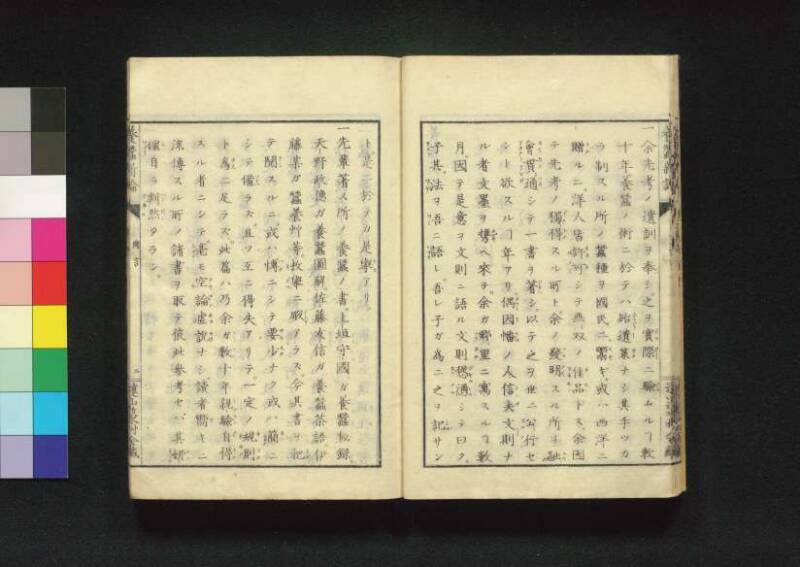 一余先考ノ遺訓ヲ奉シ之ヲ實際ニ驗ムルヿ數
十年養蚕ノ術ニ於テハ遺策ナシ其手ツカ
ラ制スル所ノ蚕種ヲ國民ニ鬻キ或ハ西洋ニ
贈ルニ洋人皆称シテ無双ノ佳品トス余因
テ先考ノ獨得スル所ト余ノ發明スル所ヲ融
會貫通シテ一書ヲ著シ以テ之ヲ世ニ公行セ
ント欲スルヿ年アリ偶因幡ノ人信夫文則ナ
ル者文墨ヲ携ヘ來ヲ余ガ郷里ニ寓スルヿ數
月因テ是意ヲ文則ニ語ル文則穏通シテ曰ク
子其法ヲ吾ニ語レ吾レ子ガ為ニ之ヲ記サン
ト是ニ於テカ是擧アリ
一先輩著ス所ノ養蚕ノ書上垣守國ガ養蚕秘録
天野政徳ガ養蚕圖解佐藤友信ガ養蚕茶話伊
藤某ガ蚕養艸等枚擧ニ暇アラス今其書ヲ把
テ閲スルニ或ハ博ニシテ要少ナク或ハ簡ニ
シテ備ラス且ツ互ニ得失アリテ一定ノ規則
ト為ニ足ラズ此篇ハ乃余ガ數十年親驗自得
スル者ニシテ毫モ空論虚説ナシ讀者嚮キニ
流傳スル所ノ諸書ヲ取テ彼此参考セバ其妍
媸自ラ判然タラン
養蚕新論
例言
二